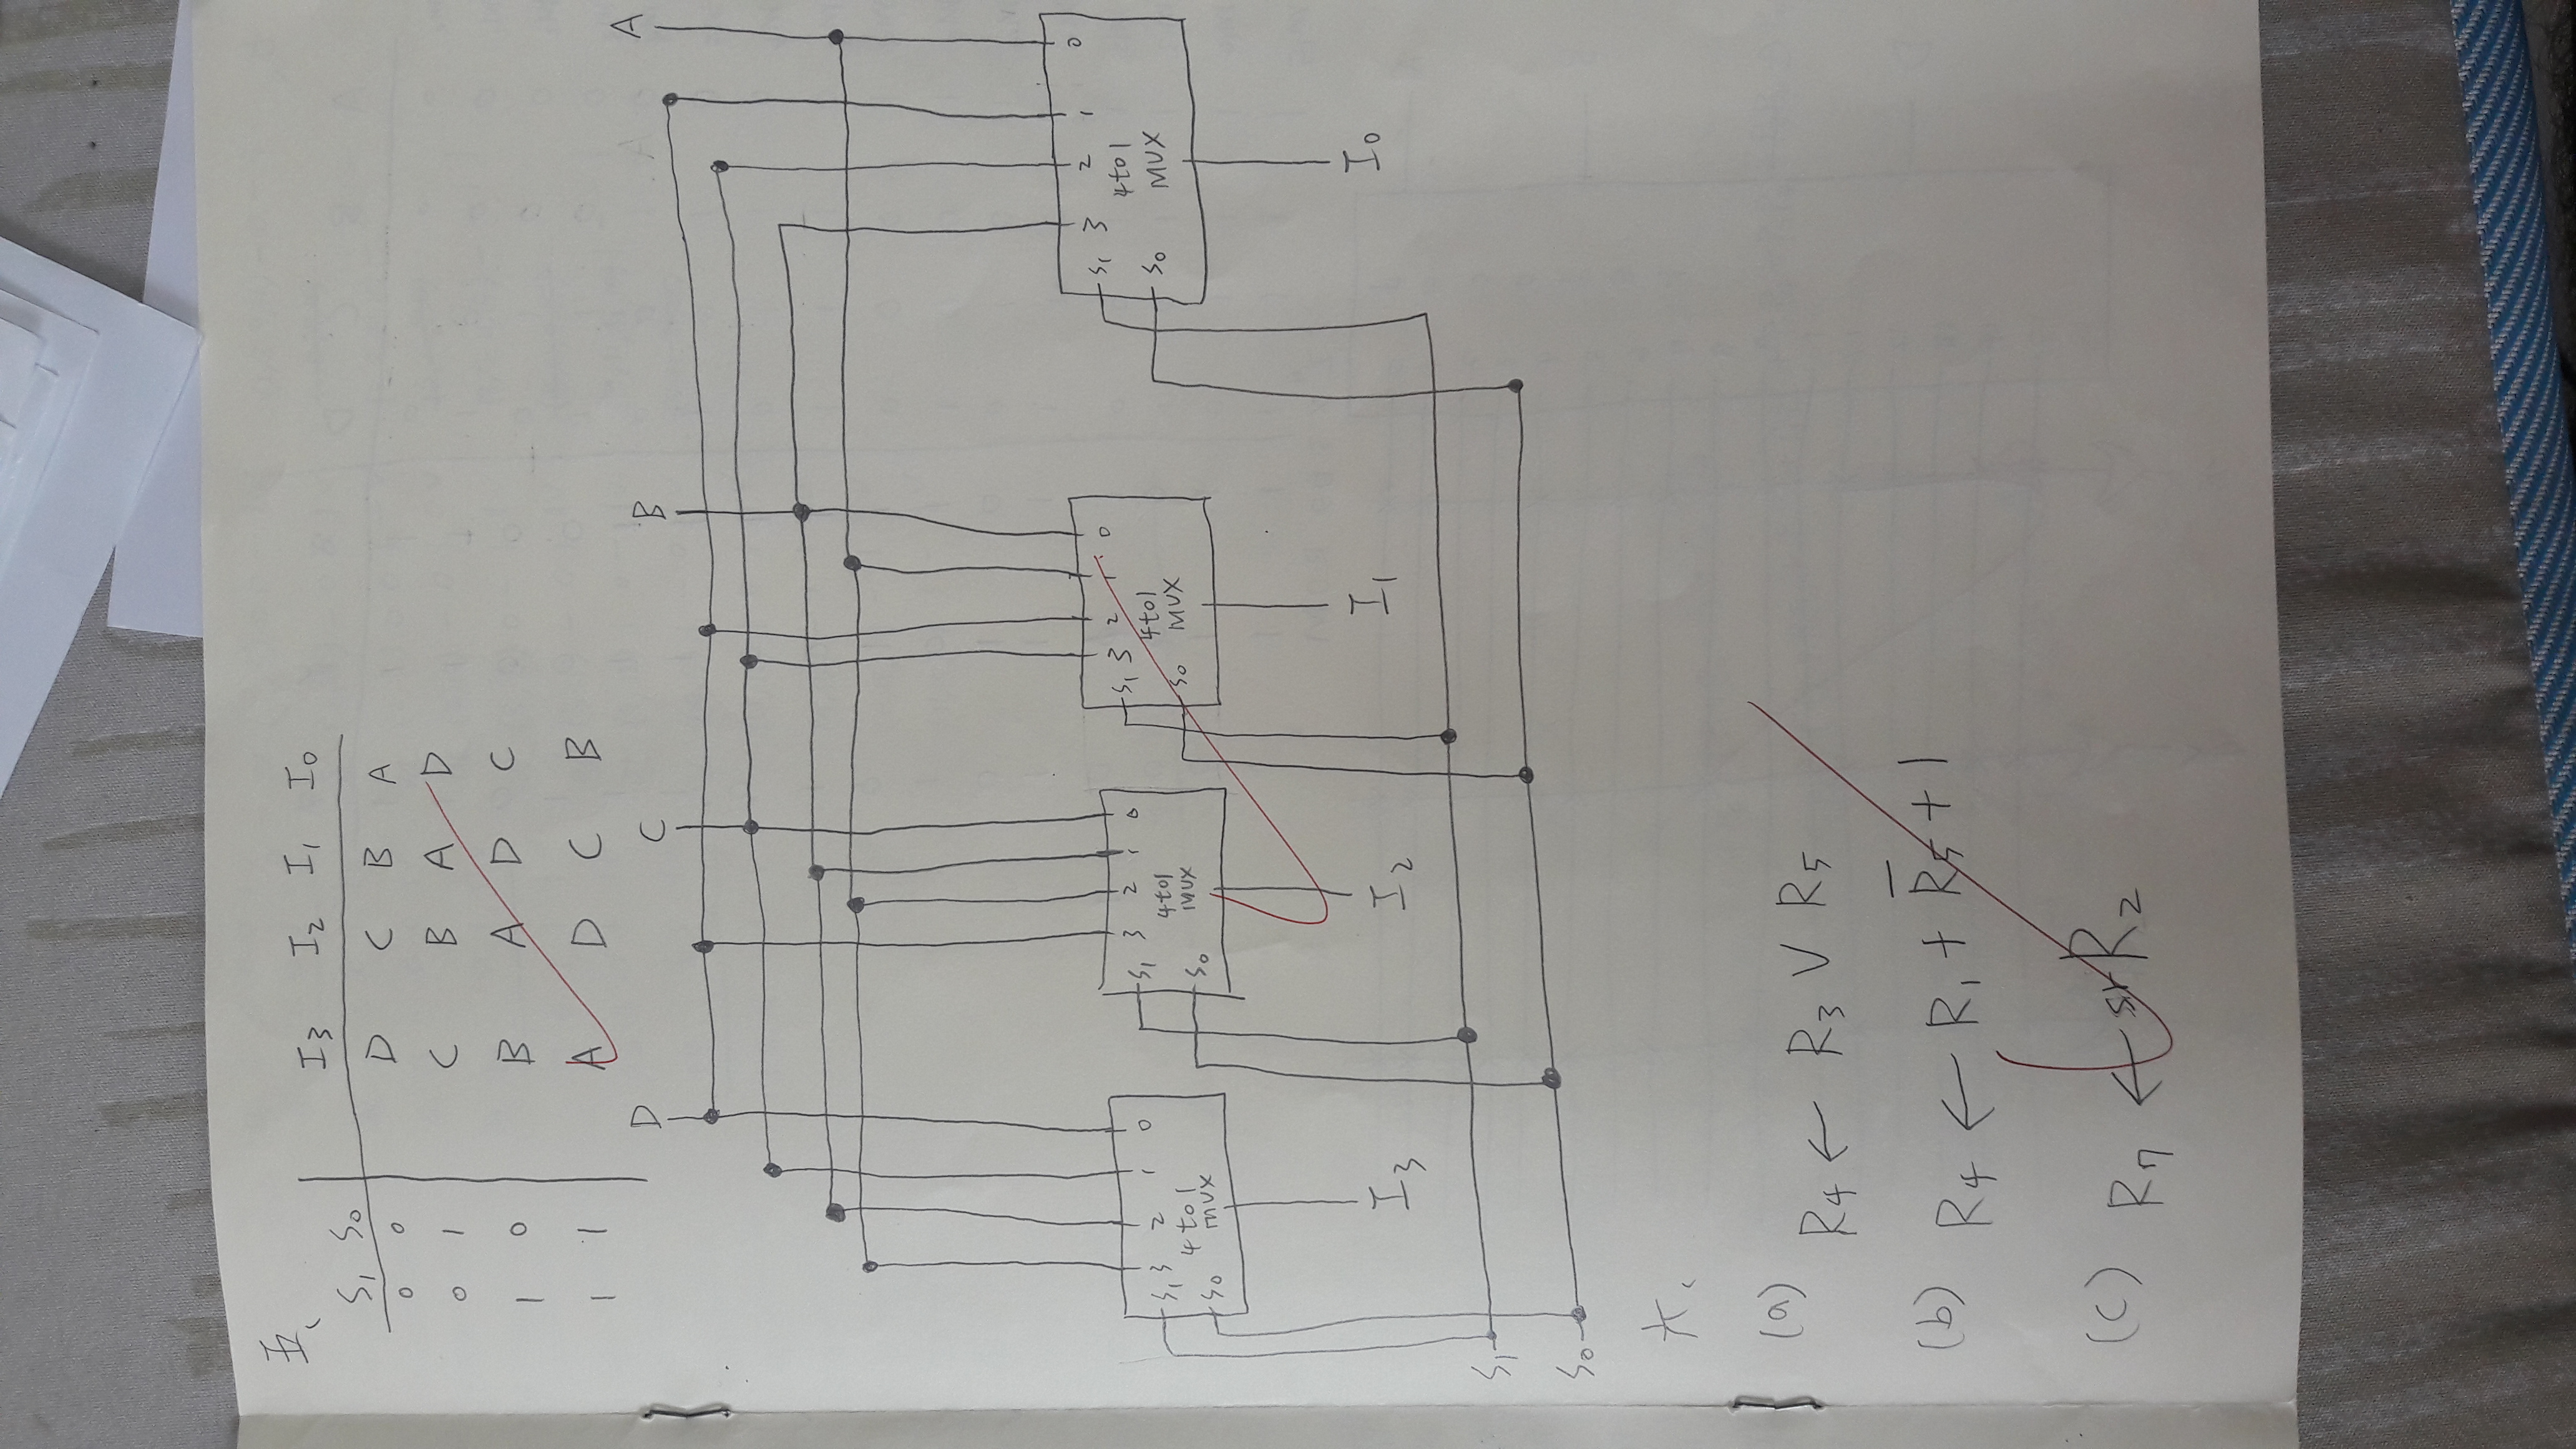 五、
S₁ S₀ I₃ I₂ I₁ I₀
0 0 D C B A
0 1 C B A D
1 0 B A D C
1 1 A D C B
D C B A
S₁ 3 2 1 0
S₀ 4to1 MUX
S₁ 3 2 1 0
S₀ 4to1 MUX
S₁ 3 2 1 0
S₀ 4to1 MUX
S₁ 3 2 1 0
S₀ 4to1 MUX
I₃ I₂ I₁ I₀
S₁
S₀
六、
(a) R₄ ← R₃ ∨ R₅
(b) R₄ ← R₁ + R̅₅ + 1
(c) R₇ ← sr R₂